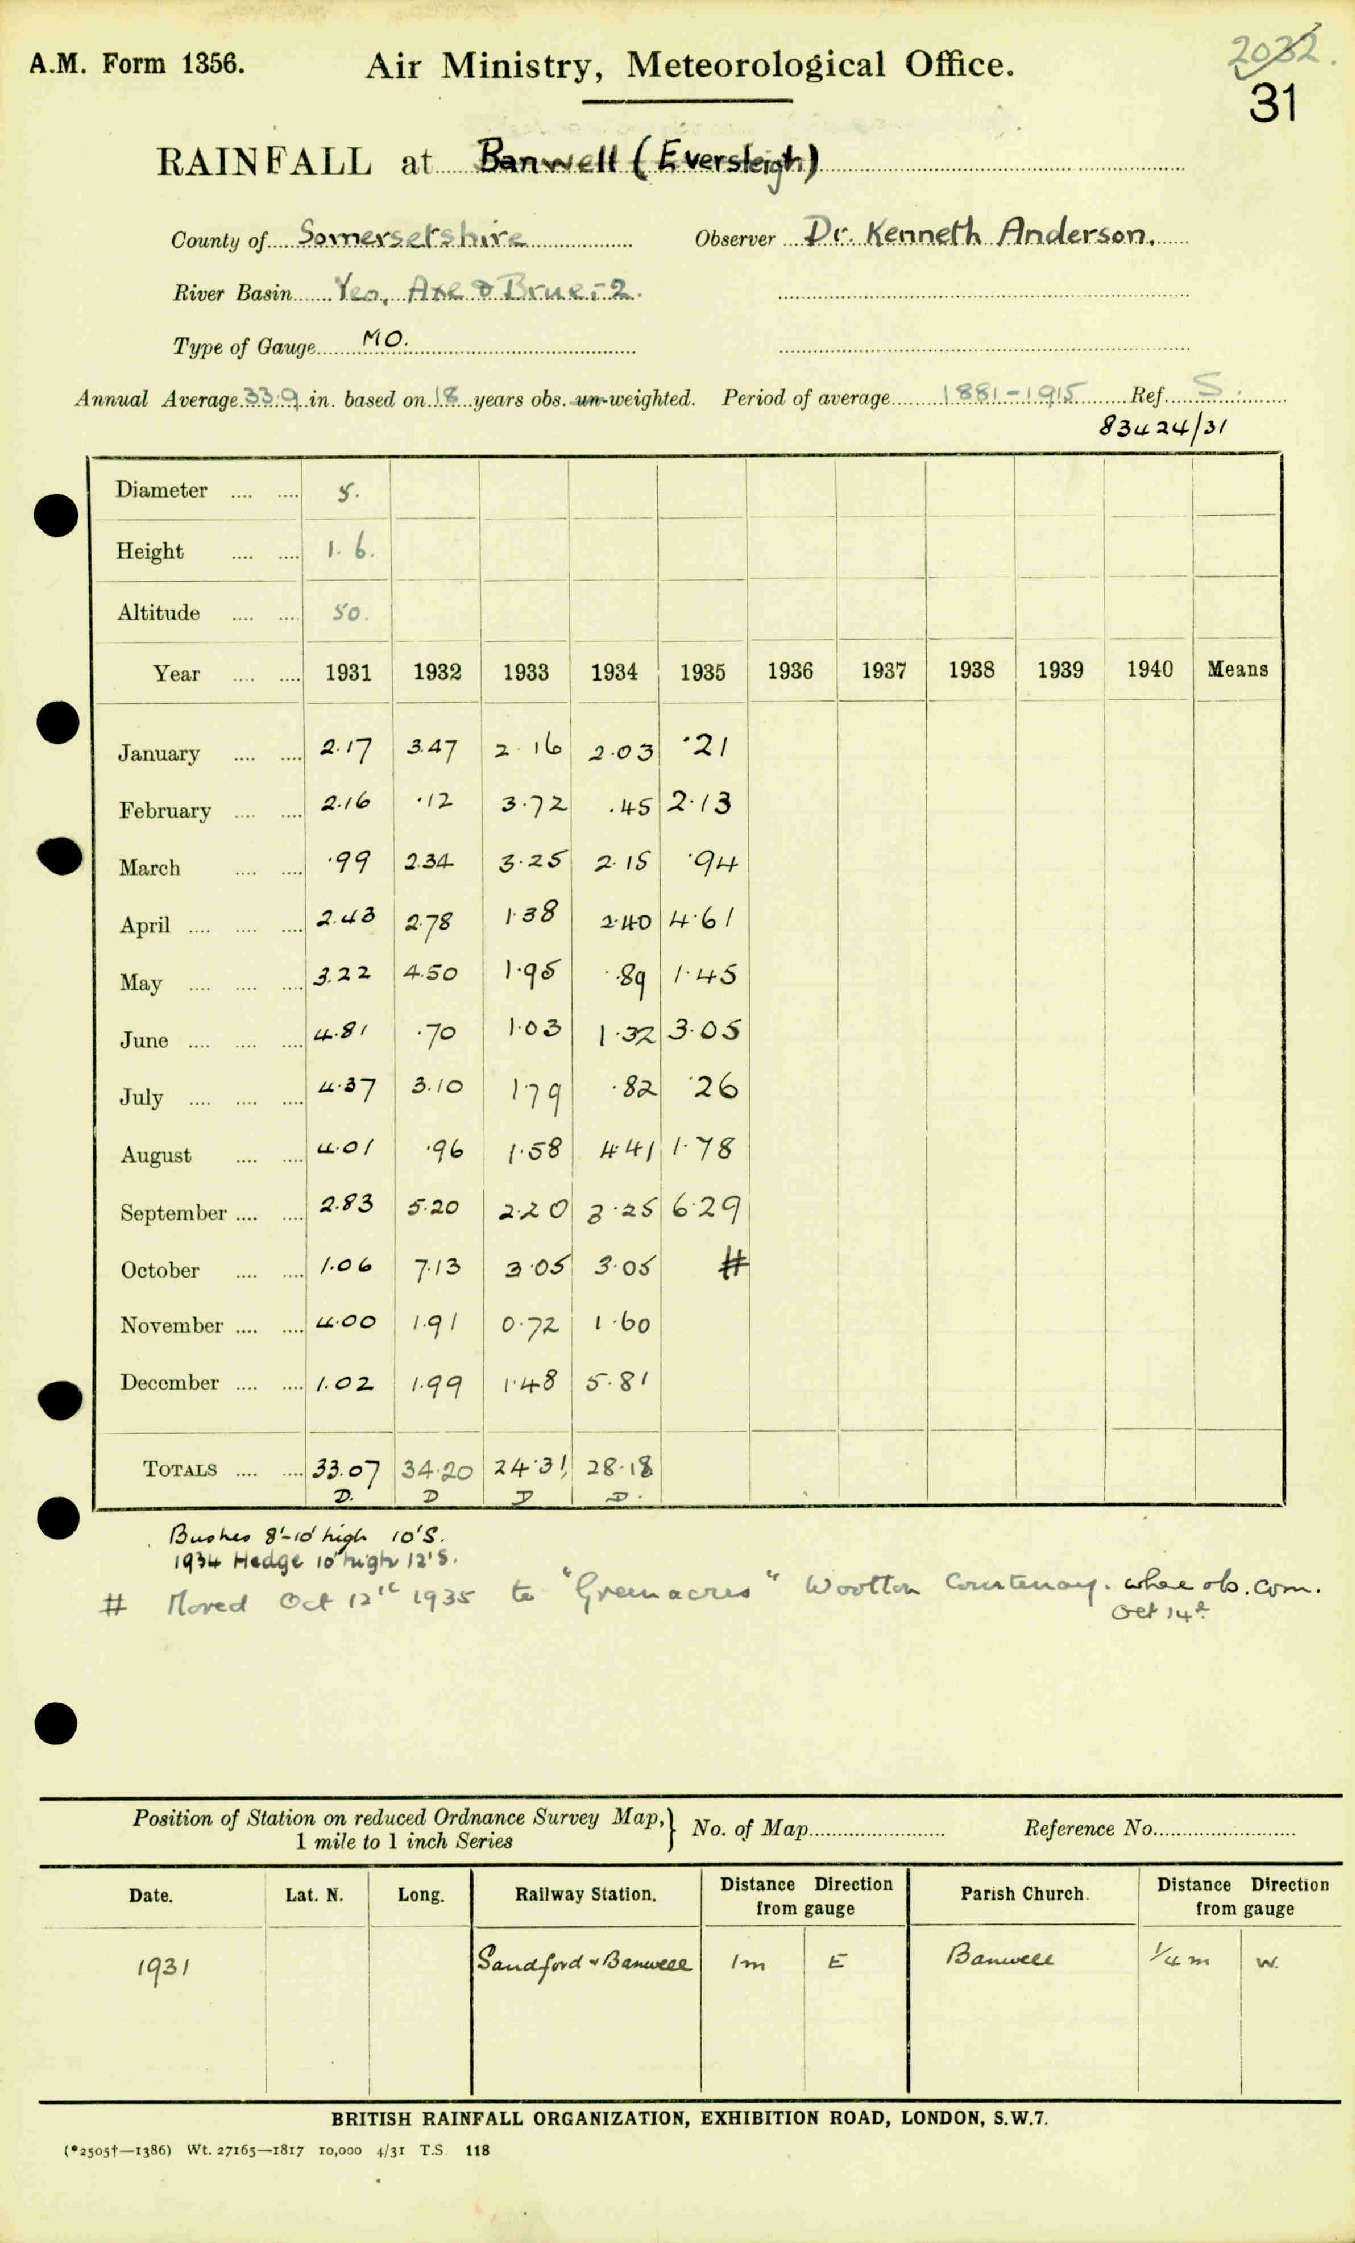 A.M. Form 1356.
Air Ministry, Meteorological Office.
2032.
31
RAINFALL at Banwell (Eversleigh)
County of Somersetshire Observer Dr. Kenneth Anderson.
River Basin Yeo, Axe & Brue :- 2.
Type of Gauge MO.
Annual Average 33.9 in. based on 18 years obs. un-weighted. Period of average 1881-1915 Ref. S.
83424/31
Diameter .... .... 5.
Height .... .... 1. 6.
Altitude .... .... 50.
Year .... .... 1931 1932 1933 1934 1935 1936 1937 1938 1939 1940 Means
January .... .... 2.17 3.47 2.16 2.03 .21
February .... .... 2.16 .12 3.72 .45 2.13
March .... .... .99 2.34 3.25 2.15 .94
April .... .... .... 2.43 2.78 1.38 2.40 4.61
May .... .... .... 3.22 4.50 1.95 .89 1.45
June .... .... .... 4.81 .70 1.03 1.32 3.05
July .... .... .... 4.37 3.10 1.79 .82 .26
August .... .... 4.01 .96 1.58 4.41 1.78
September .... .... 2.83 5.20 2.20 3.25 6.29
October .... .... 1.06 7.13 3.05 3.05 #
November .... .... 4.00 1.91 0.72 1.60
December .... .... 1.02 1.99 1.48 5.81
TOTALS .... .... 33.07 34.20 24.31 28.18
D. D D D.
Bushes 8'-10' high 10'S.
1934 Hedge 10' high 12'S.
# Moved Oct 12th 1935 to "Greenacres" Wootton Courtenay. where ob. com.
Oct 14th
Position of Station on reduced Ordnance Survey Map, } No. of Map Reference No.
1 mile to 1 inch Series
Date. Lat. N. Long. Railway Station. Distance Direction from gauge Parish Church. Distance Direction from gauge
1931 Sandford & Banwell 1m E Banwell 1/4 m W.
BRITISH RAINFALL ORGANIZATION, EXHIBITION ROAD, LONDON, S.W.7.
(*2505†—1386) Wt. 27165—1817 10,000 4/31 T.S. 118